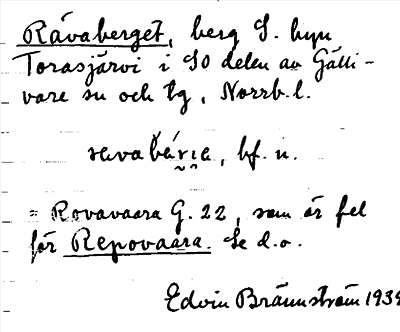 Råvaberget, berg S. byn
Torasjärvi i SO delen av Gälli-
vare sn och tg, Norrb.l.
rava bávıe, bf. n.
= Rovavaara G. 22, som är fel
för Repovaara. Se d.o.
Edvin Brännström 1939